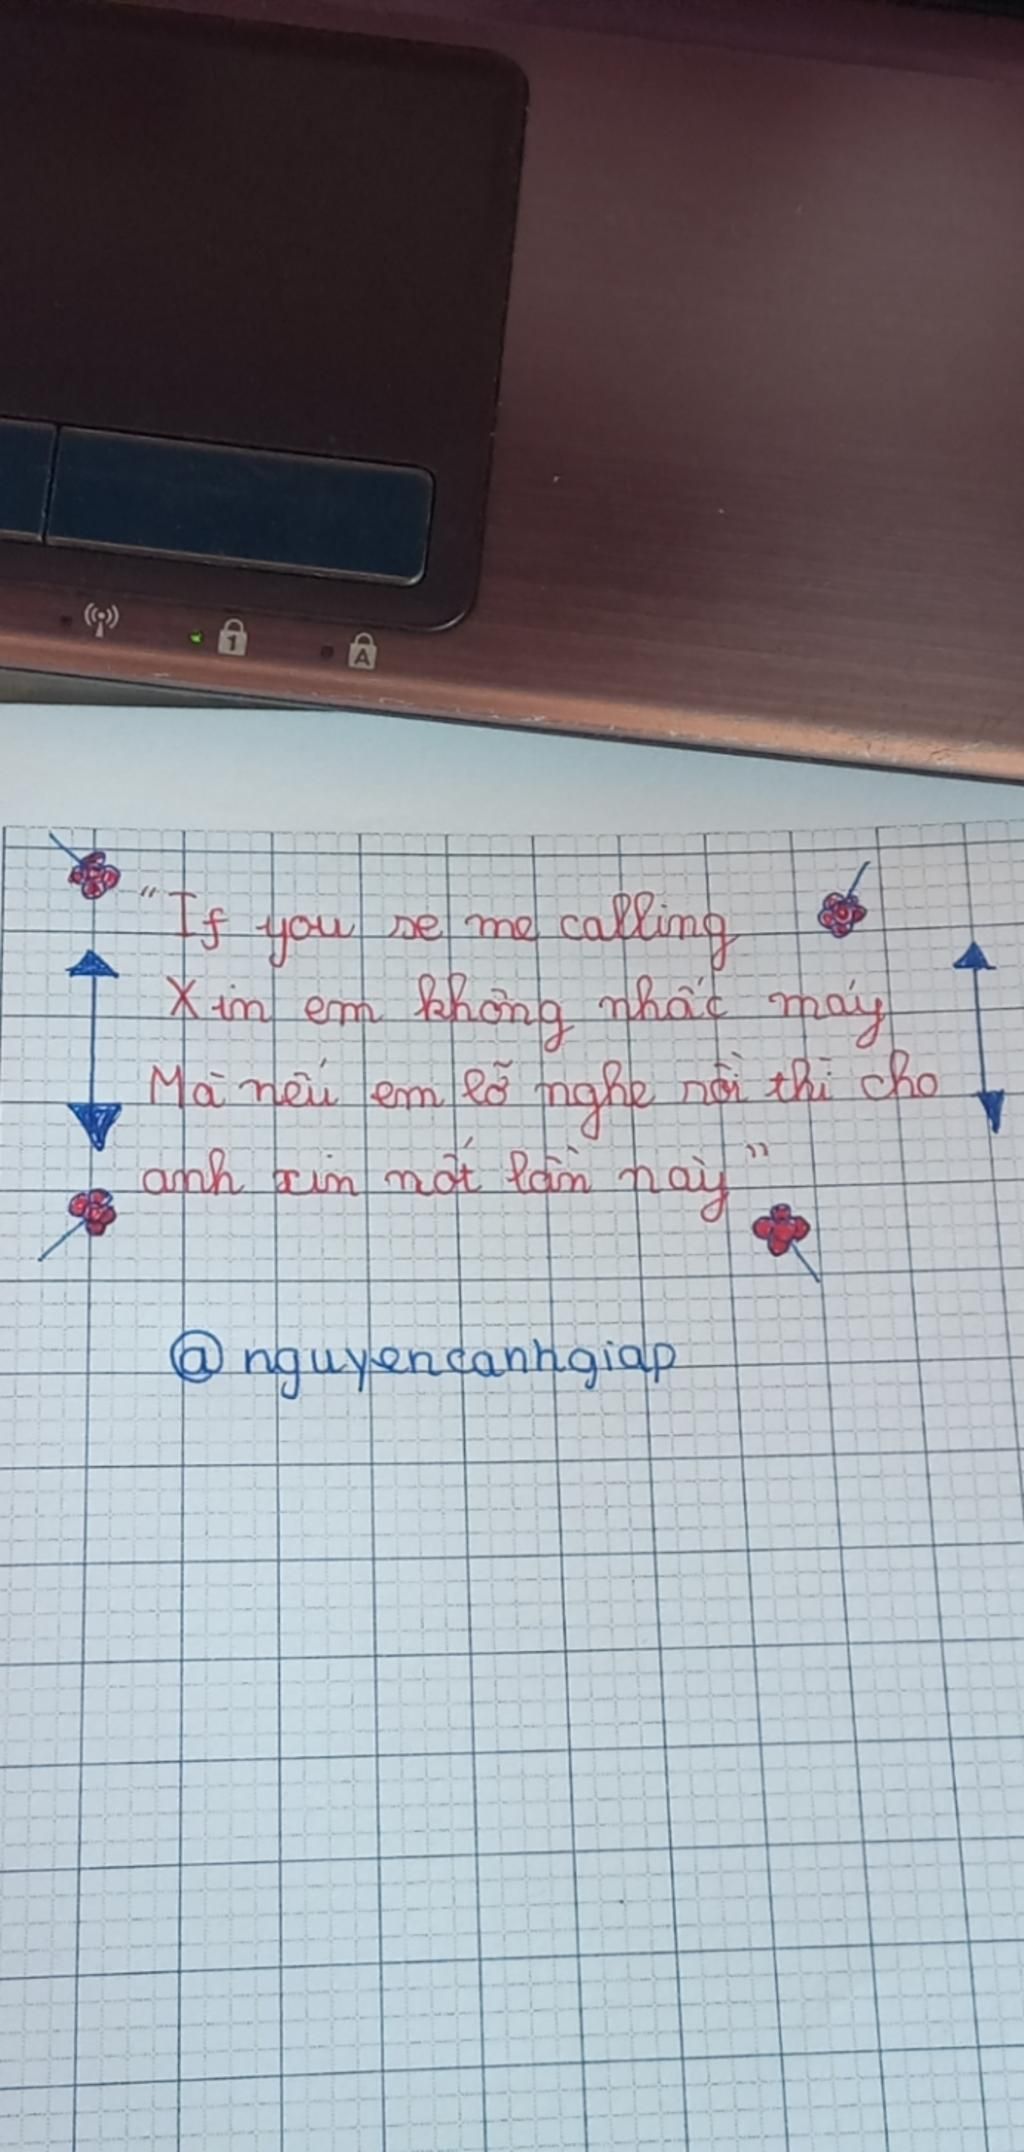 1
A
"If you se me calling
Xin em không nhấc máy
Mà nếu em lỡ nghe rồi thì cho
anh xin nốt lần này"
@nguyencanhgiap